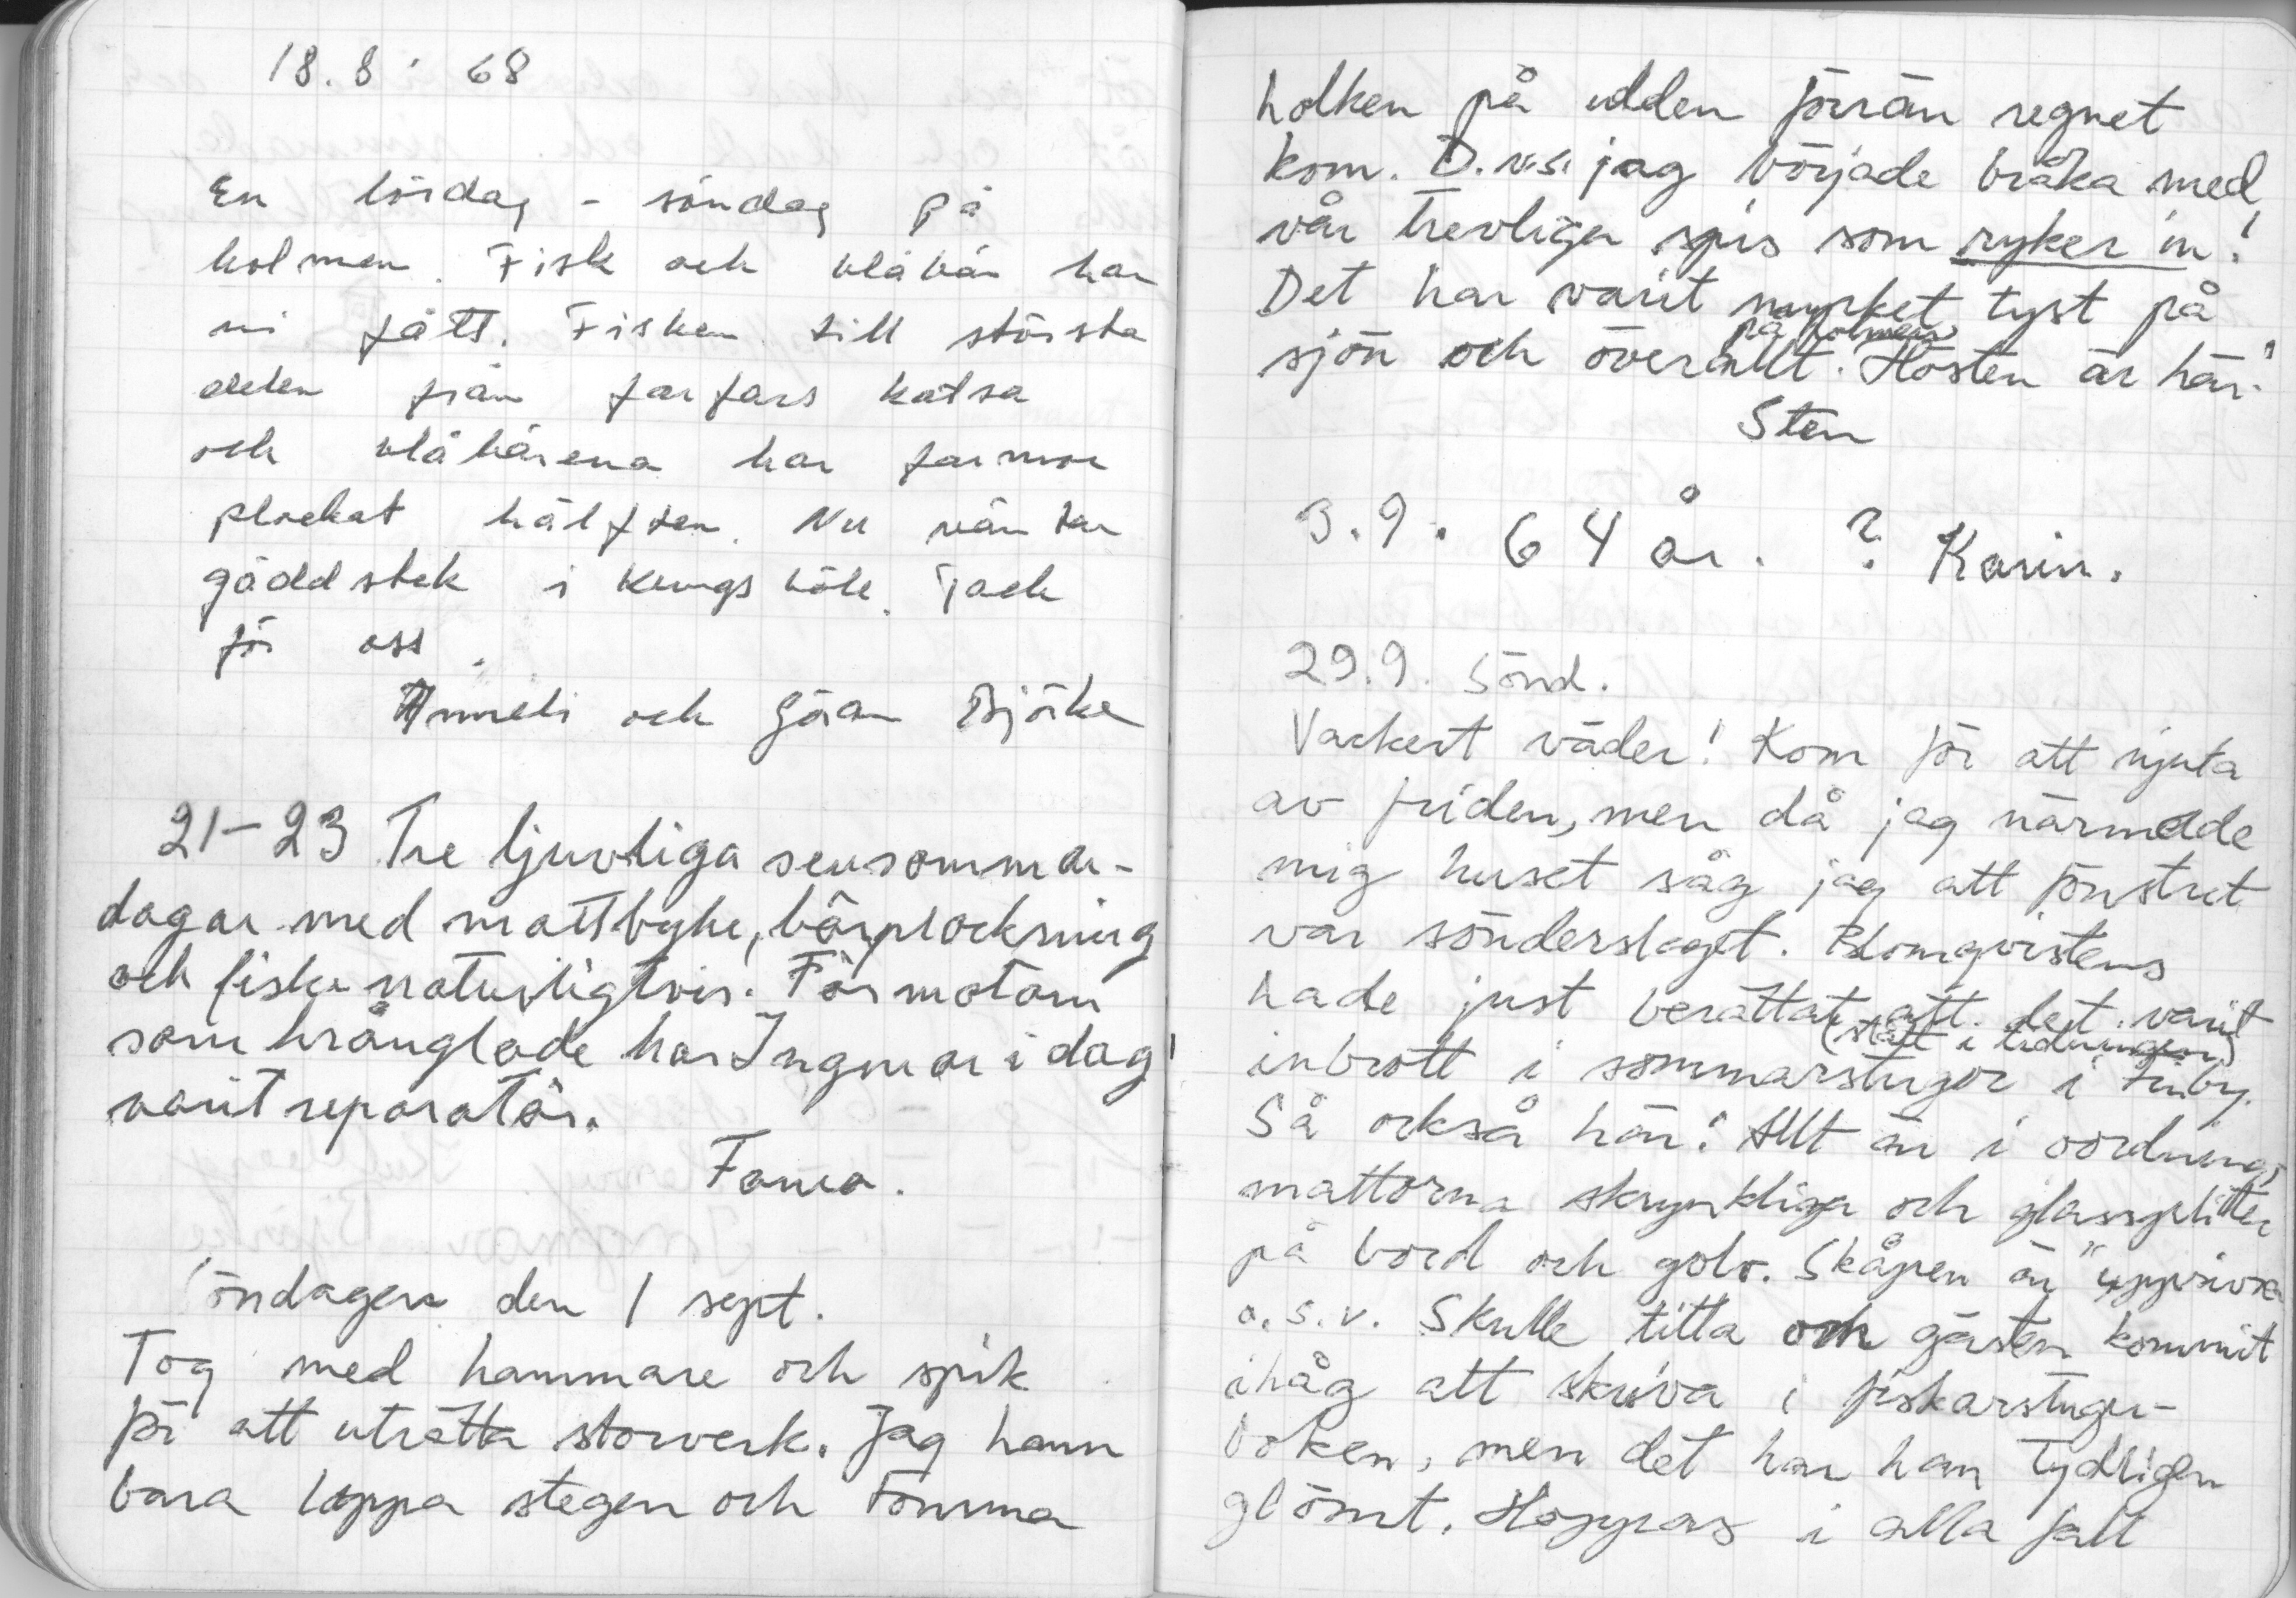 18.8 ' 68
En lördag - söndag på
holmen. Fisk och blåbär har
vi fått. Fisken till största
delen från farfars katsa
och blåbärena har farmor
plockat hälften. Nu väntar
gäddstek i Kungsböle. Tack
för oss.
Anneli och Göran Björke
21-23 Tre ljuvliga sensommar-
dagar med mattbyke, bärplockning
och fiske naturligtvis. För motorn
som krånglade har Ingmar i dag
varit reparatör.
Fama.
Söndagen den 1 sept.
Tog med hammare och spik
för att uträtta storverk. Jag hann
bara lappa stegen och tömma
holken på udden förrän regnet
kom. D.v.s. jag började bråka med
vår trevliga spis som ryker in!
Det har varit mycket tyst på
sjön och överallt på holmen. Hösten är här!
Sten
3.9. 64 år. ? Karin.
29.9. Sönd.
Vackert väder! Kom för att njuta
av friden, men då jag närmade
mig huset såg jag att fönstret
var sönderslaget. Blomqvistens
hade just berättat att det varit
(stått i tidningen)
inbrott i sommarstugor i Finby.
Så också här! Allt är i oordning,
mattorna skrynkliga och glassplitter
på bord och golv. Skåpen är "upprivna
o.s.v. Skulle titta om gästen kommit
ihåg att skriva i fiskarstugu-
boken, men det har han tydligen
glömt. Hoppas i alla fall